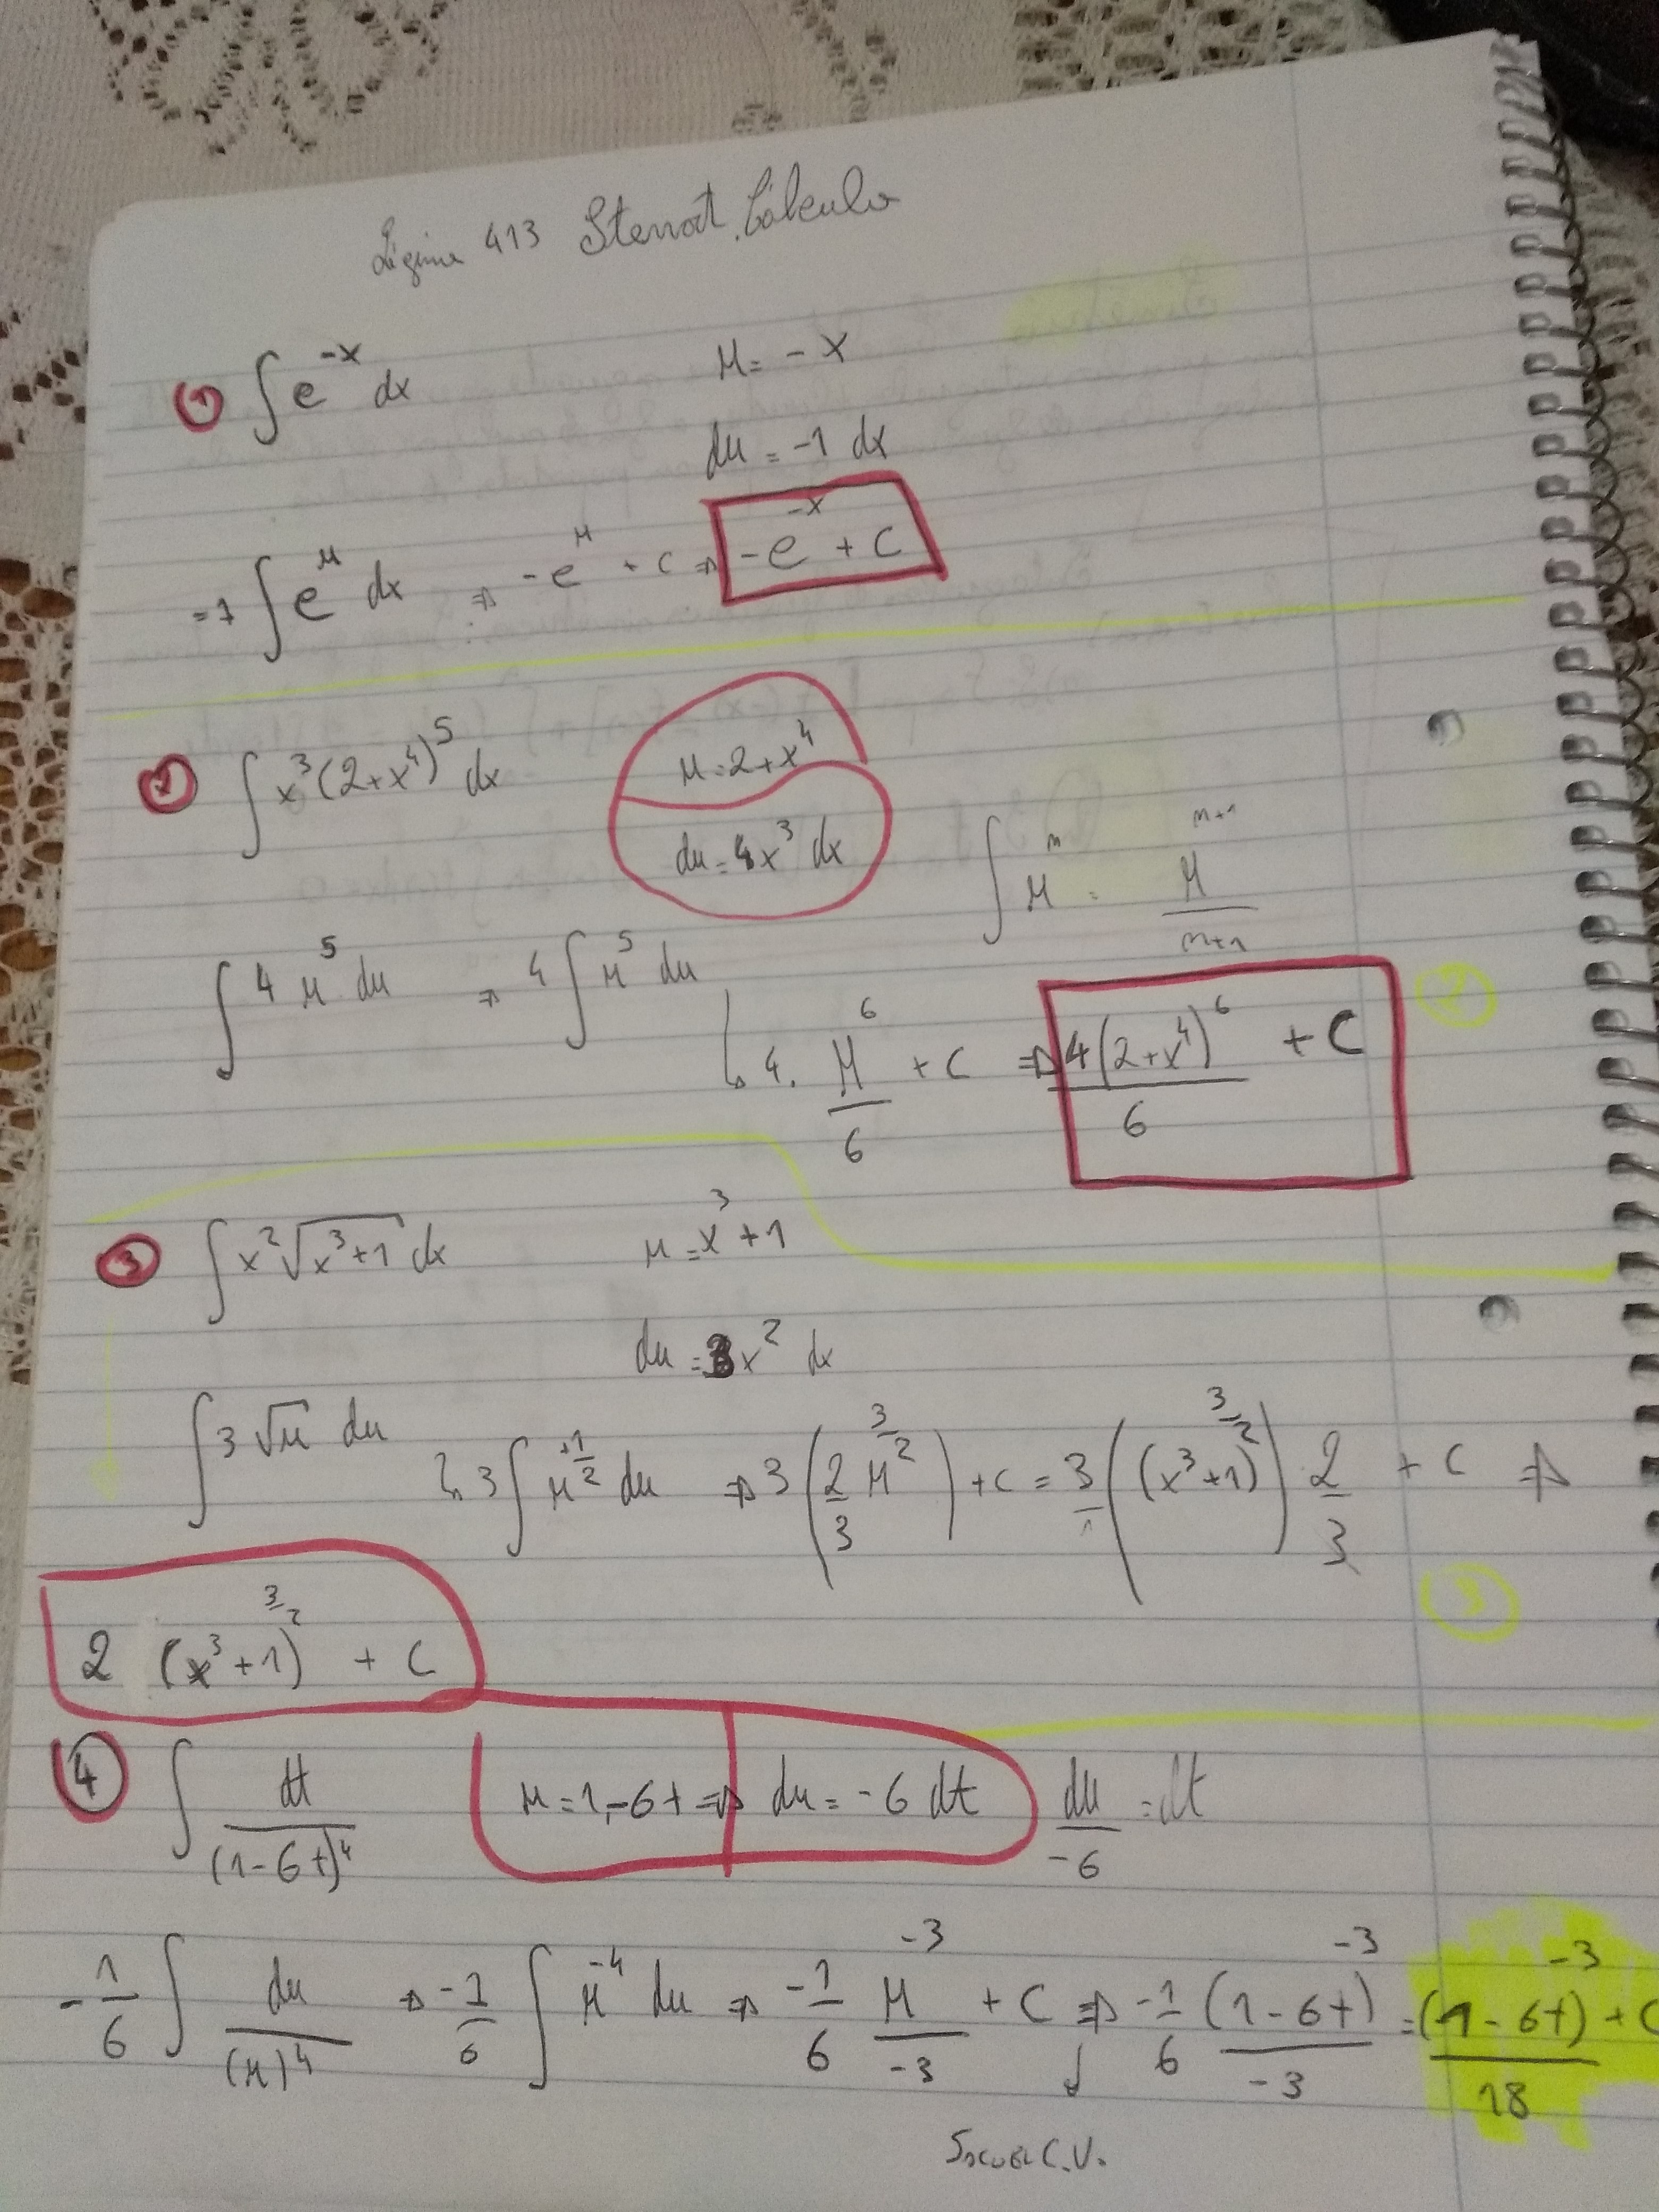 Página 413 Stewart, Cálculo
① ∫ e^{-x} dx    u = -x
du = -1 dx
= -1 ∫ e^u dx ⇒ -e^u + C ⇒ -e^{-x} + C
② ∫ x³(2+x⁴)⁵ dx    u = 2+x⁴
du = 4x³ dx    ∫ u^n = u^{n+1}/(n+1)
∫ 4 u⁵ du ⇒ 4 ∫ u⁵ du
↳ 4 · u⁶/6 + C ⇒ 4(2+x⁴)⁶/6 + C    ②
③ ∫ x² √(x³+1) dx    u = x³+1
du = 3x² dx
∫ 3 √u du ↳ 3 ∫ u^{+1/2} du ⇒ 3 (2/3 u^{3/2}) + C = 3/1 ((x³+1)^{3/2}) 2/3 + C ⇒
③
2 (x³+1)^{3/2} + C
④ ∫ dt/(1-6t)⁴    u = 1-6t ⇒ du = -6 dt    du/-6 = dt
-1/6 ∫ du/(u)⁴ ⇒ -1/6 ∫ u^{-4} du ⇒ -1/6 u^{-3}/-3 + C ⇒ -1/6 (1-6t)^{-3}/-3 = (1-6t)^{-3}/18 + C